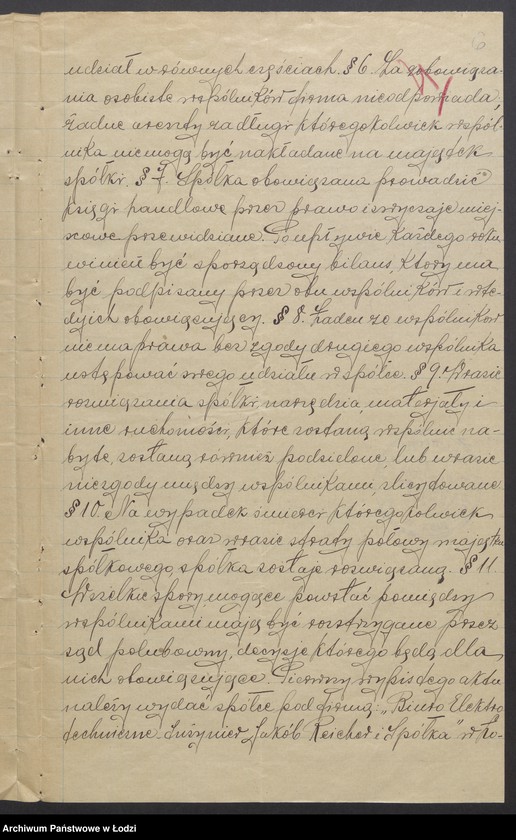 6
udział w równych częściach. § 6. Za zobowiąza-
nia osobiste wspólników firma nie odpowiada,
żadne areszty za długi któregokolwiek wspól-
nika nie mogą być nakładane na majątek
spółki. § 7. Spółka obowiązana prowadzić
księgi handlowe przez prawo i zwyczaje miej-
scowe przewidziane. Po upływie każdego roku
winien być sporządzony bilans, który ma
być podpisany przez obu wspólników i wte-
dy ich obowiązujący. § 8. Żaden ze wspólników
nie ma prawa bez zgody drugiego wspólnika
ustępować swego udziału w spółce. § 9. W razie
rozwiązania spółki, narzędzia, materjały i
inne ruchomości, które zostaną wspólnie na-
byte, zostaną również podzielone, lub w razie
niezgody między wspólnikami, zlicytowane
§ 10. Na wypadek śmierci któregokolwiek
wspólnika oraz w razie straty połowy majątku
spółkowego, spółka zostaje rozwiązaną. § 11.
Wszelkie spory, mogące powstać pomiędzy
wspólnikami mają być rozstrzygane przez
sąd polubowny, decyzje którego będą dla
nich obowiązujące. Pierwszy wypis tego aktu
należy wydać spółce pod firmą: „Biuro Elektro
techniczne Inżynier Jakób Reicher i Spółka" w Ło-
Archiwum Państwowe w Łodzi